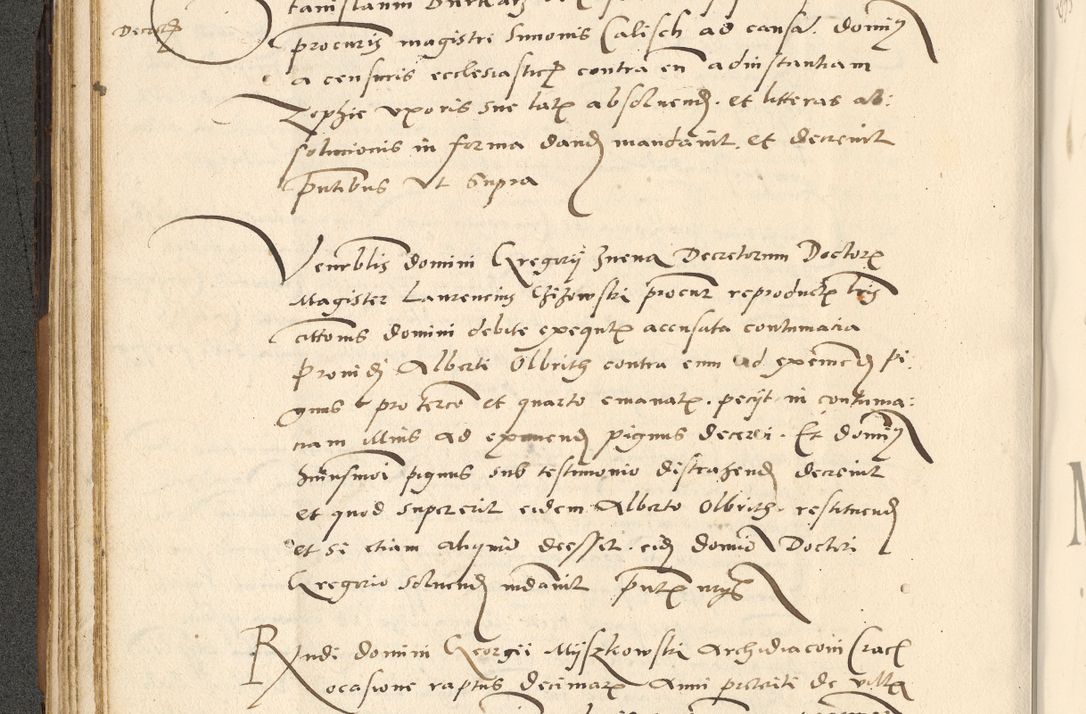 procuris magistri Simonis Calisch ad causā. dominꝫ
Decretꝫ
a censuris ecclesiasticꝫ contra eū ad instantiam
Zophie uxoris sue latꝫ absoluendꝫ. et litteras ab:
solucionis in forma dandꝫ mandauit. et decreuit
pn̄tibus ut supra
Venerblis domini Gregorij Zuena Decretorum Doctorꝫ
Magister Laurencius Chizowski procur reproductꝫ lrīs
citationis domini debite exequtꝫ accusata contumacia
Prouidj Alberti Olbrith contra eum ad eximendꝫ pi:
gnus pro tercō et quarto emanatꝫ. pecijt in contuma:
ciam illius ad eximendꝫ pignus decerni. Et dominꝫ
huiusmoi pignus sub testimonio distrahendꝫ decreuit
et quod supererit eidem Alberto Olbrith. restituendꝫ
et si etiam aliquid deesset. eidꝫ domino Doctori
Gregorio soluendꝫ mdauit pn̄tꝫ
Rndi domini Georgii Myszkowski Archidiaconi Cracꝫ
occasione raptus decimarꝫ Anni preteriti de villa